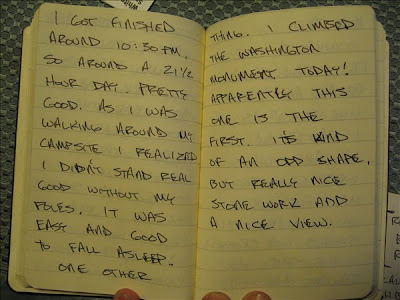 I GOT FINISHED
AROUND 10:30 PM,
SO AROUND A 21 1/2
HOUR DAY. PRETTY
GOOD. AS I WAS
WALKING AROUND MY
CAMPSITE I REALIZED
I DIDN'T STAND REAL
GOOD WITHOUT MY
POLES. IT WAS
EASY AND GOOD
TO FALL ASLEEP.
ONE OTHER
THING. I CLIMBED
THE WASHINGTON
MONUMENT TODAY!
APPARENTLY THIS
ONE IS THE
FIRST. ITS KIND
OF AN ODD SHAPE,
BUT REALLY NICE
STONE WORK AND
A NICE VIEW.